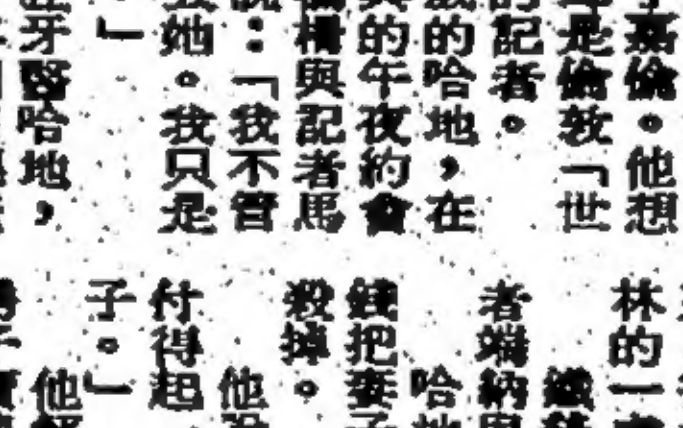 嘉倫。他想
是倫敦「世
記者。
的哈地，在
的午夜約會
柵與記者馬
：「我不管
她。我只是
」
牙醫哈地，
林的一
鐵
者端納
哈地
錢把妻子
殺掉。
他
付得起
子。」
他